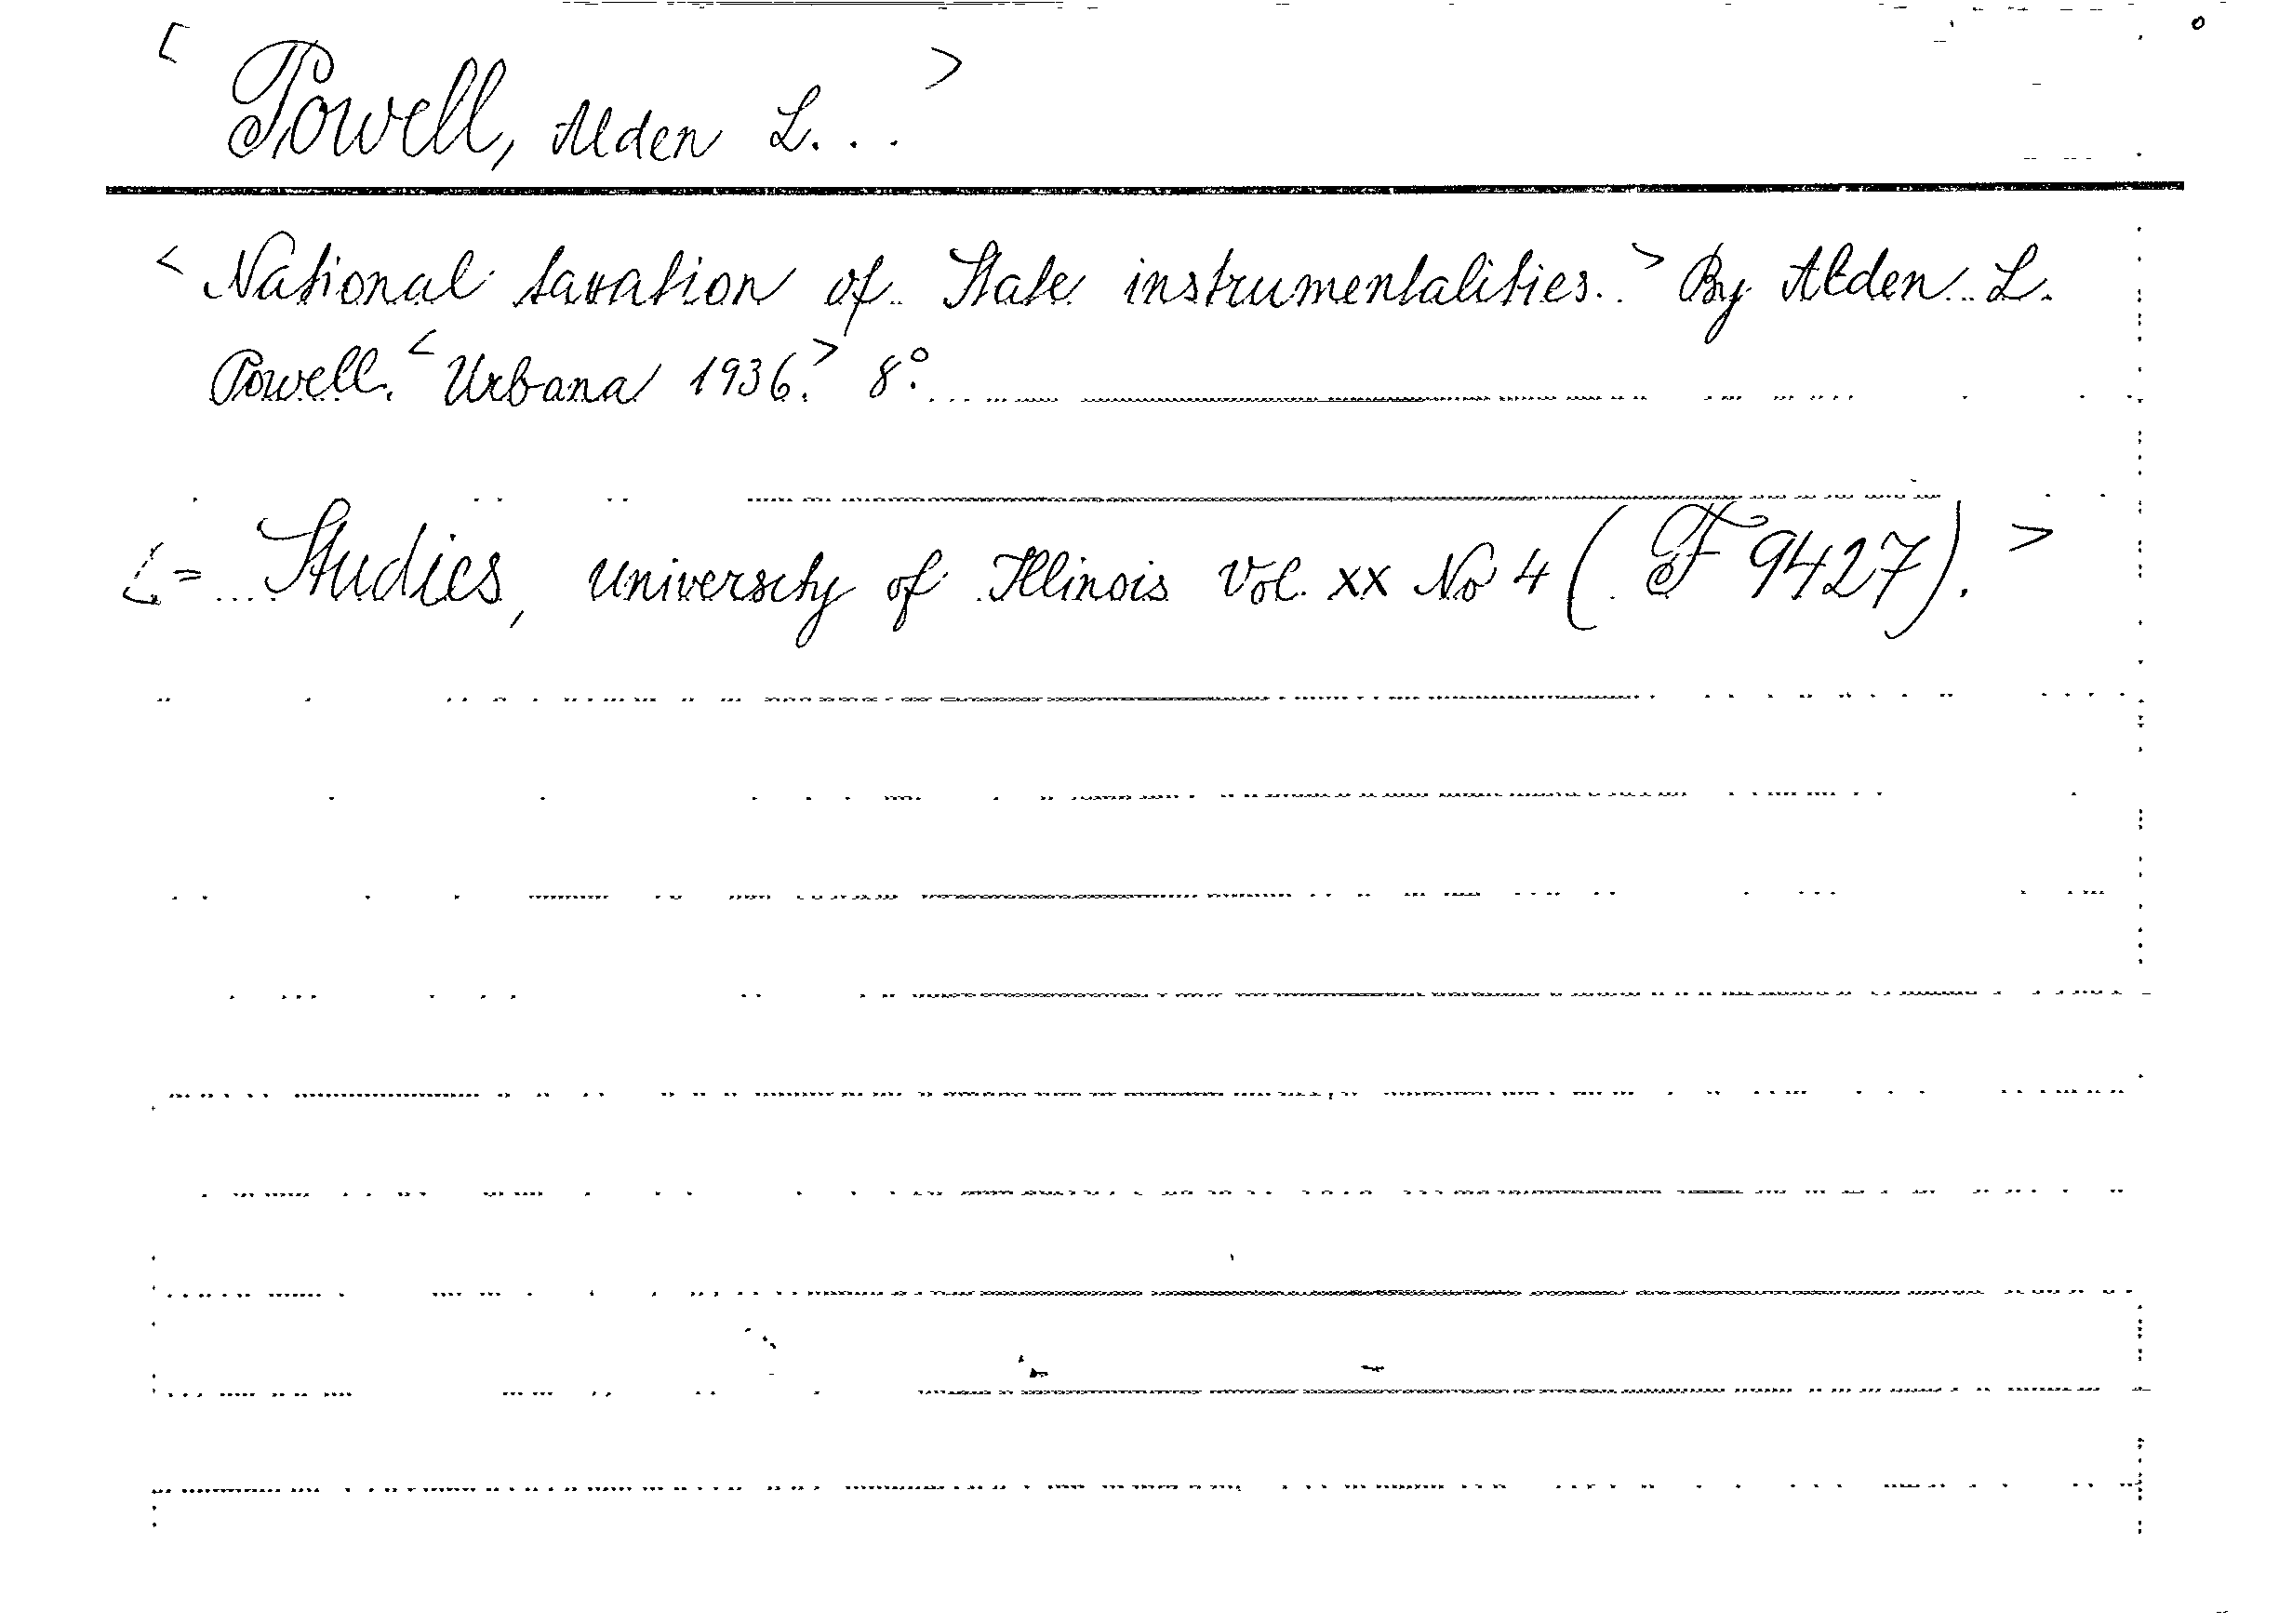 < Powell, Alden L... >
< National taxation of State instrumentalities. > By Alden L.
Powell. < Urbana 1936. > 8°.
< = Studies, university of Illinois Vol. XX No 4 ( F 9427). >